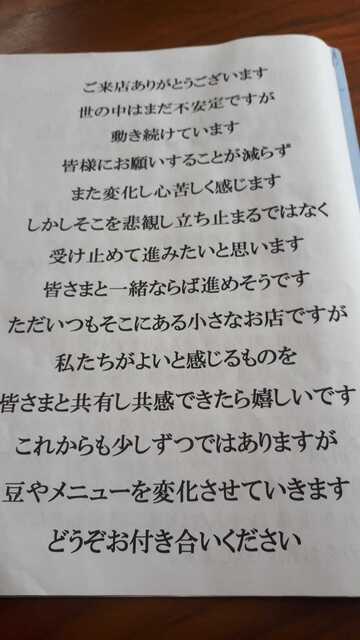 ご来店ありがとうございます
世の中はまだ不安定ですが
動き続けています
皆様にお願いすることが減らず
また変化し心苦しく感じます
しかしそこを悲観し立ち止まるではなく
受け止めて進みたいと思います
皆さまと一緒ならば進めそうです
ただいつもそこにある小さなお店ですが
私たちがよいと感じるものを
皆さまと共有し共感できたら嬉しいです
これからも少しずつではありますが
豆やメニューを変化させていきます
どうぞお付き合いください